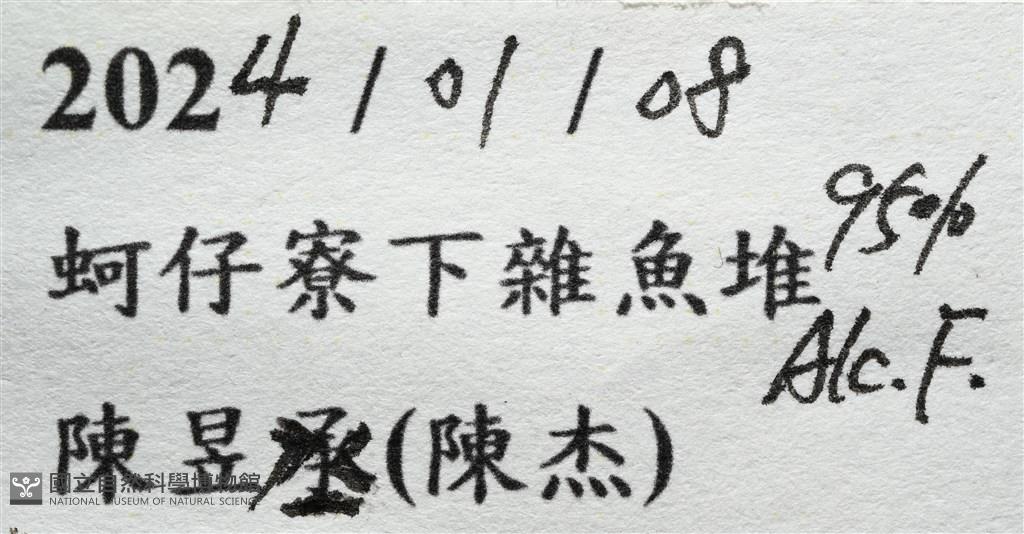 2024/01/08
蚵仔寮下雜魚堆 95%
Alc. F.
陳昱(陳杰)
國立自然科學博物館
NATIONAL MUSEUM OF NATURAL SCIENCE